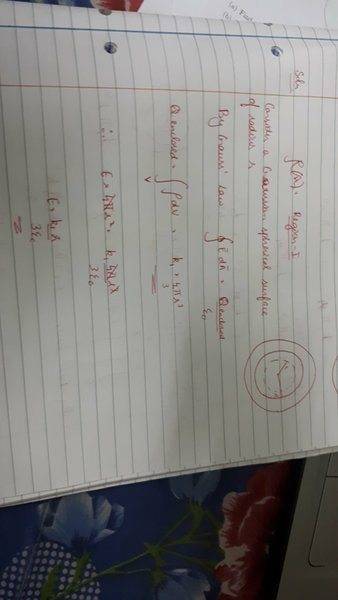 Soln
Region-I
Consider a Gaussian spherical surface
of radius r
By Gauss' Law ∮ E̅ da̅ = Qenclosed / ε₀
Q enclosed = ∫ᵥ ρdv = k₁ × 4πr³/3
∴ E × 4πr² = k₁ 4πr³ / 3ε₀
E = k₁r / 3ε₀